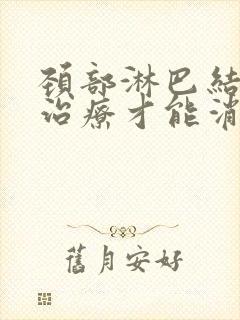 頚部淋巴結
治療才能消
舊月安好